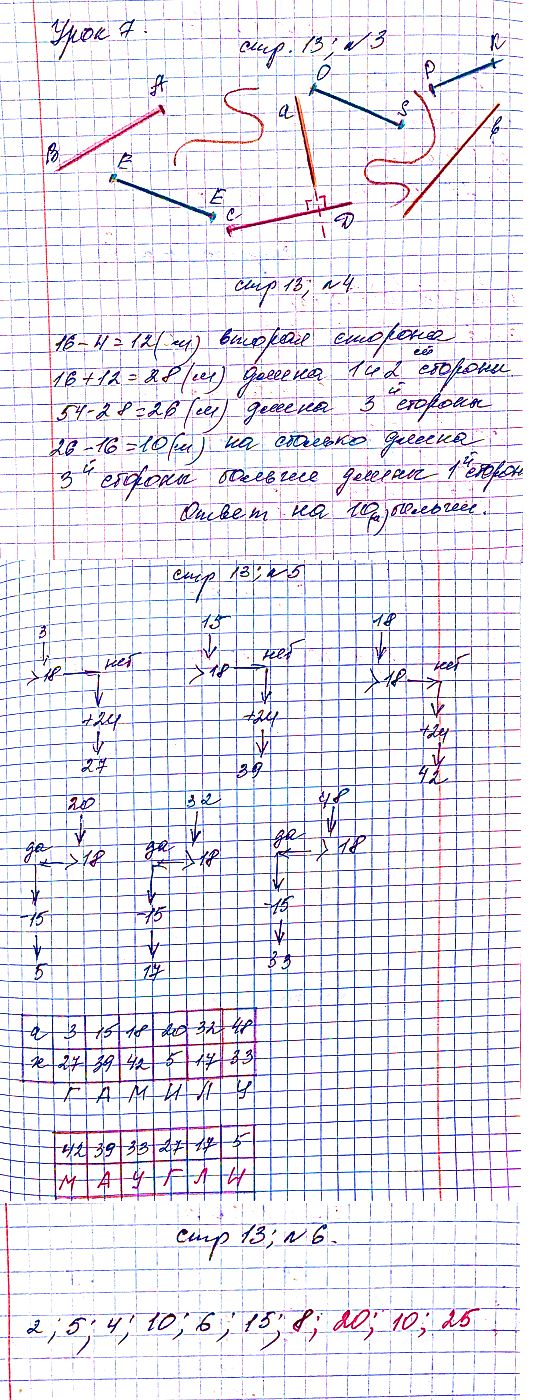 Урок 7.
стр. 13; №3
A O P R
a
B E S в
E C D
стр 13; №4
16-4=12(м) вторая сторона
16+12=28(м) длина 1и2 ой стороны
54-28=26(м) длина 3й стороны
26-16=10(м) на столько длина
3й стороны больше длины 1й сторон
Ответ на 10(м) больше.
стр 13; №5
3 15 18
>18 нет >18 нет >18 нет
+24 +24 +24
27 39 42
20 32 48
да >18 да >18 да >18
-15 -15 -15
5 17 33
a 3 15 18 20 32 48
x 27 39 42 5 17 33
Г А М И Л У
42 39 33 27 17 5
М А У Г Л И
стр 13; №6.
2; 5; 4; 10; 6; 15; 8; 20; 10; 25